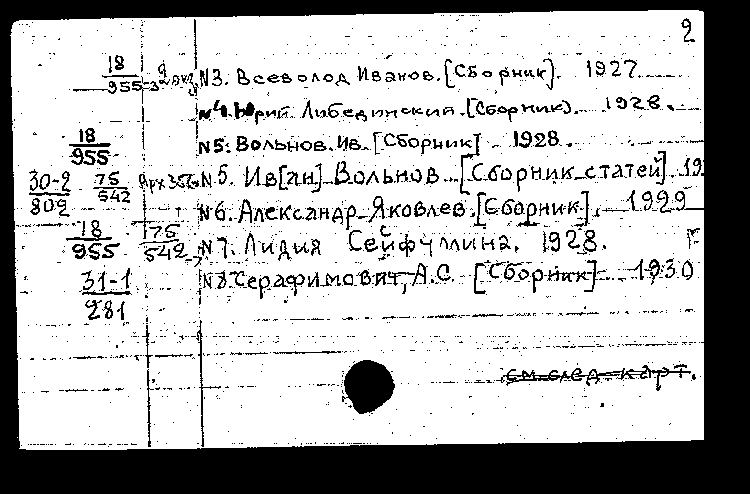 2
18/955 2 экз N3. Всеволод Иванов. [Сборник]. 1927
N4. Юрий Либединский. [Сборник]. 1928.
18/955 N5: Вольнов. Ив. [Сборник] 1928.
30-2/802 75/542 N5. Ив[ан] Вольнов [Сборник статей] 19
N6. Александр Яковлев. [Сборник]. 1929
18/955 175/542 N7. Лидия Сейфуллина. 1928.
31-1/281 N8 Серафимович, А.С. [Сборник] 1930
см. след. карт.